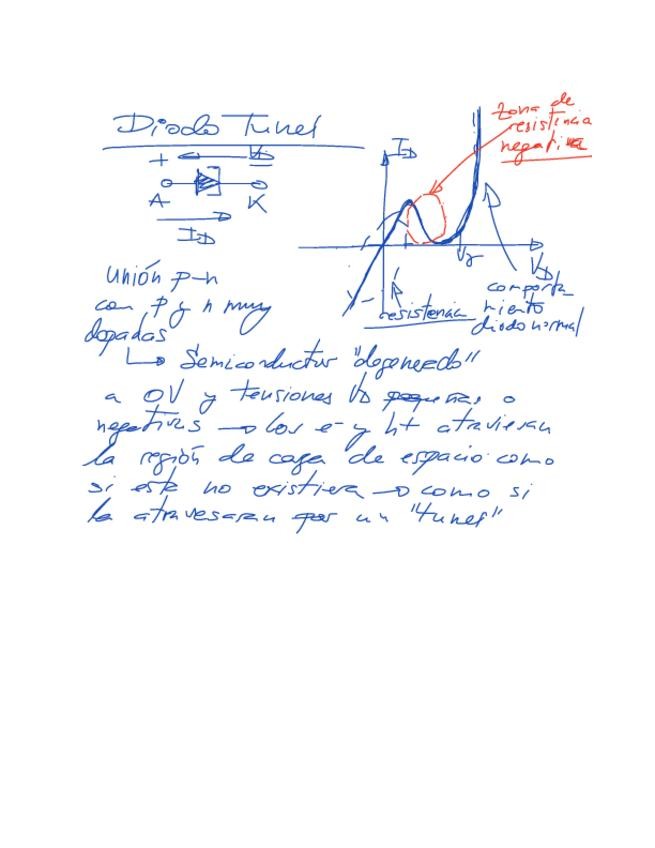 Diodo Tunel
+ V_D -
A K
I_D
I_D
zona de
resistencia
negativa
V_γ
V_D
resistencia
comporta
miento
diodo normal
unión p-n
con p y n muy
dopadas
↳ Semiconductor "degenerado"
a 0V y tensiones V_D pequeñas o
negativas → los e- y h+ atraviesan
la región de carga de espacio como
si este no existiera → como si
la atravesaran por un "tunel"